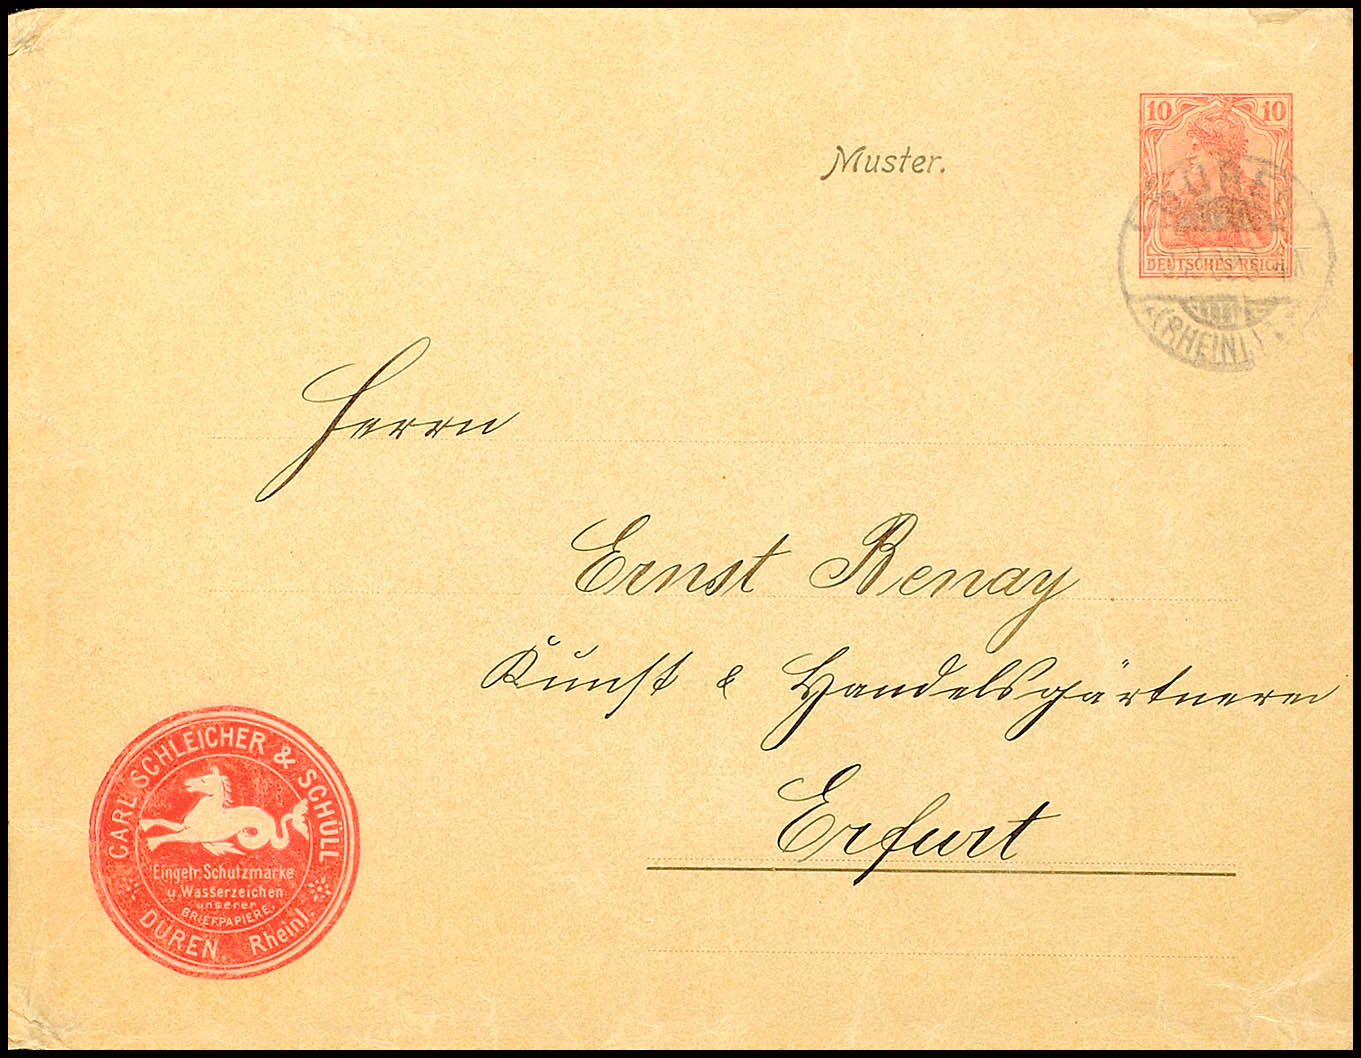 10 10
Muster.
DEUTSCHES REICH
(RHEINL.)
Herrn
Ernst Benary
Kunst & Handelsgärtnerei
Erfurt
CARL SCHLEICHER & SCHÜLL
Eingetr. Schutzmarke
u. Wasserzeichen
unserer
BRIEFPAPIERE.
DÜREN. Rheinl.